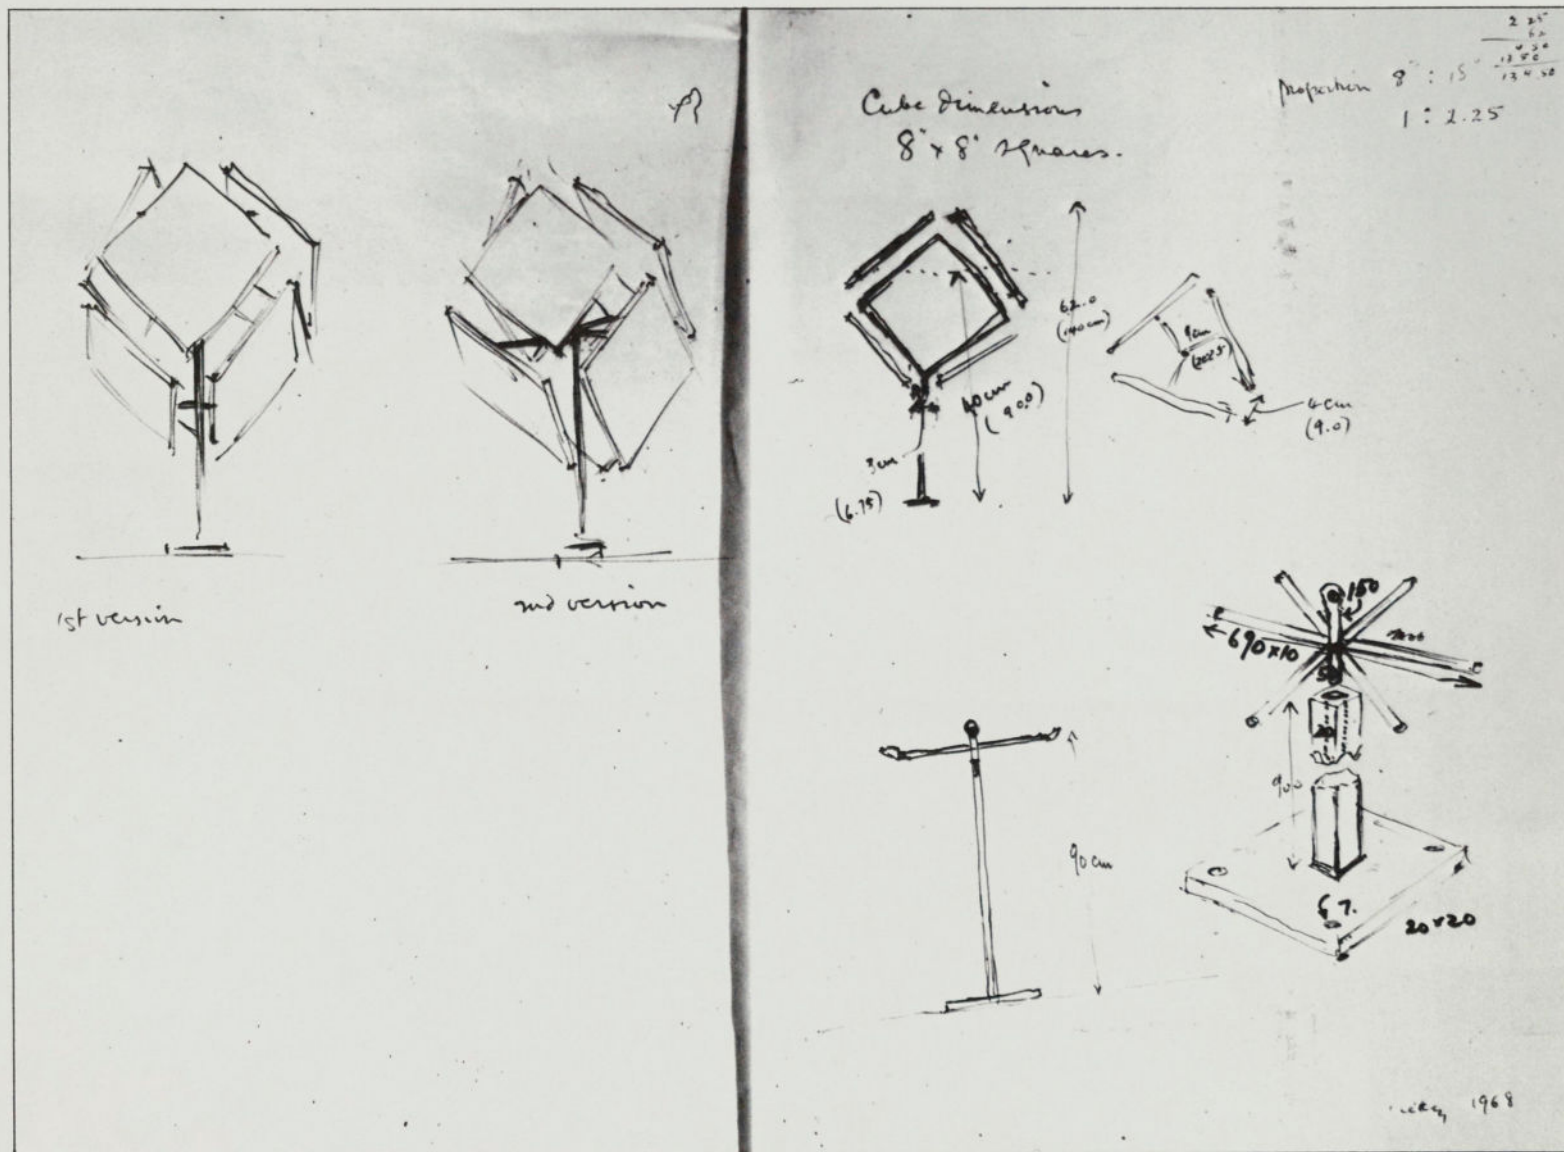 1st version
2nd version
Cube Dimensions
8" x 8" squares.
proportion 8" :
1 : 2.25
2 25
62
4 50
13 50
62.0
(140cm)
40cm
(90.0)
3cm
(6.75)
9cm
(20.25)
4cm
(9.0)
150
690 x 10
20
900
20 x 20
90 cm
1968